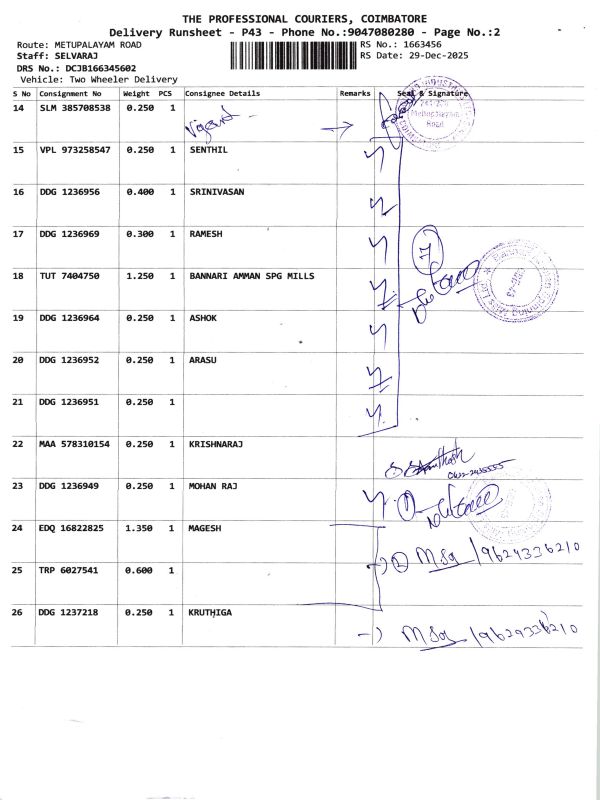 THE PROFESSIONAL COURIERS, COIMBATORE
Delivery Runsheet - P43 - Phone No.:9047080280 - Page No.:2
Route: METUPALAYAM ROAD
RS No.: 1663456
Staff: SELVARAJ
RS Date: 29-Dec-2025
DRS No.: DCJB166345602
Vehicle: Two Wheeler Delivery
S No Consignment No Weight PCS Consignee Details Remarks Seal & Signature
14 SLM 385708538 0.250 1
15 VPL 973258547 0.250 1 SENTHIL
16 DDG 1236956 0.400 1 SRINIVASAN
17 DDG 1236969 0.300 1 RAMESH
18 TUT 7404750 1.250 1 BANNARI AMMAN SPG MILLS
19 DDG 1236964 0.250 1 ASHOK
20 DDG 1236952 0.250 1 ARASU
21 DDG 1236951 0.250 1
22 MAA 578310154 0.250 1 KRISHNARAJ
23 DDG 1236949 0.250 1 MOHAN RAJ
24 EDQ 16822825 1.350 1 MAGESH
25 TRP 6027541 0.600 1
26 DDG 1237218 0.250 1 KRUTHIGA